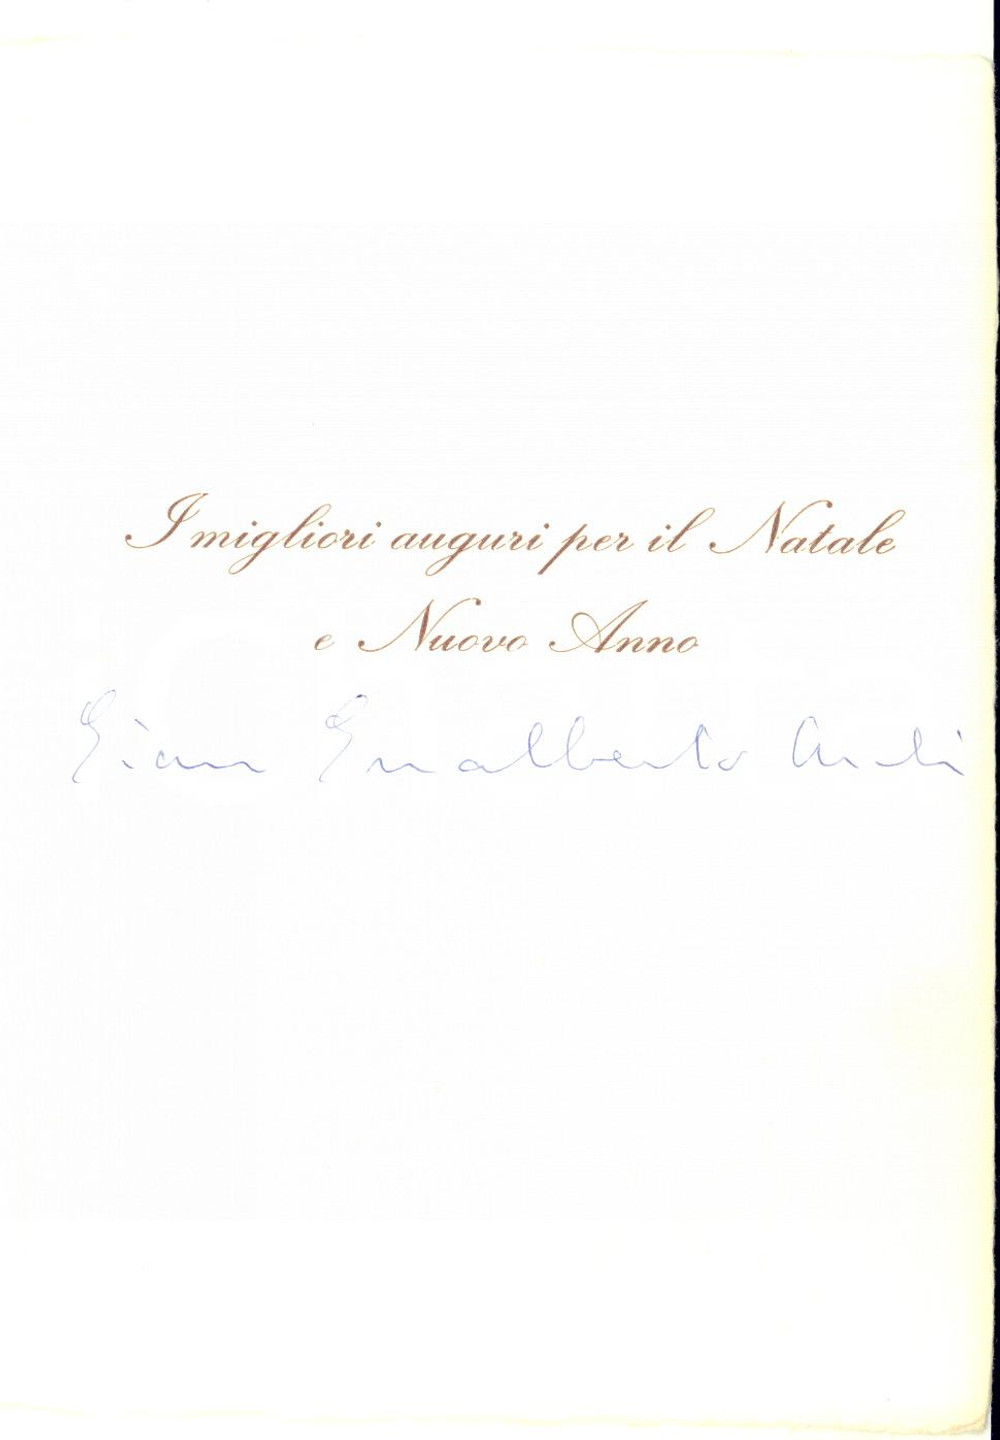 I migliori auguri per il Natale
e Nuovo Anno
Gian Gualberto Archi